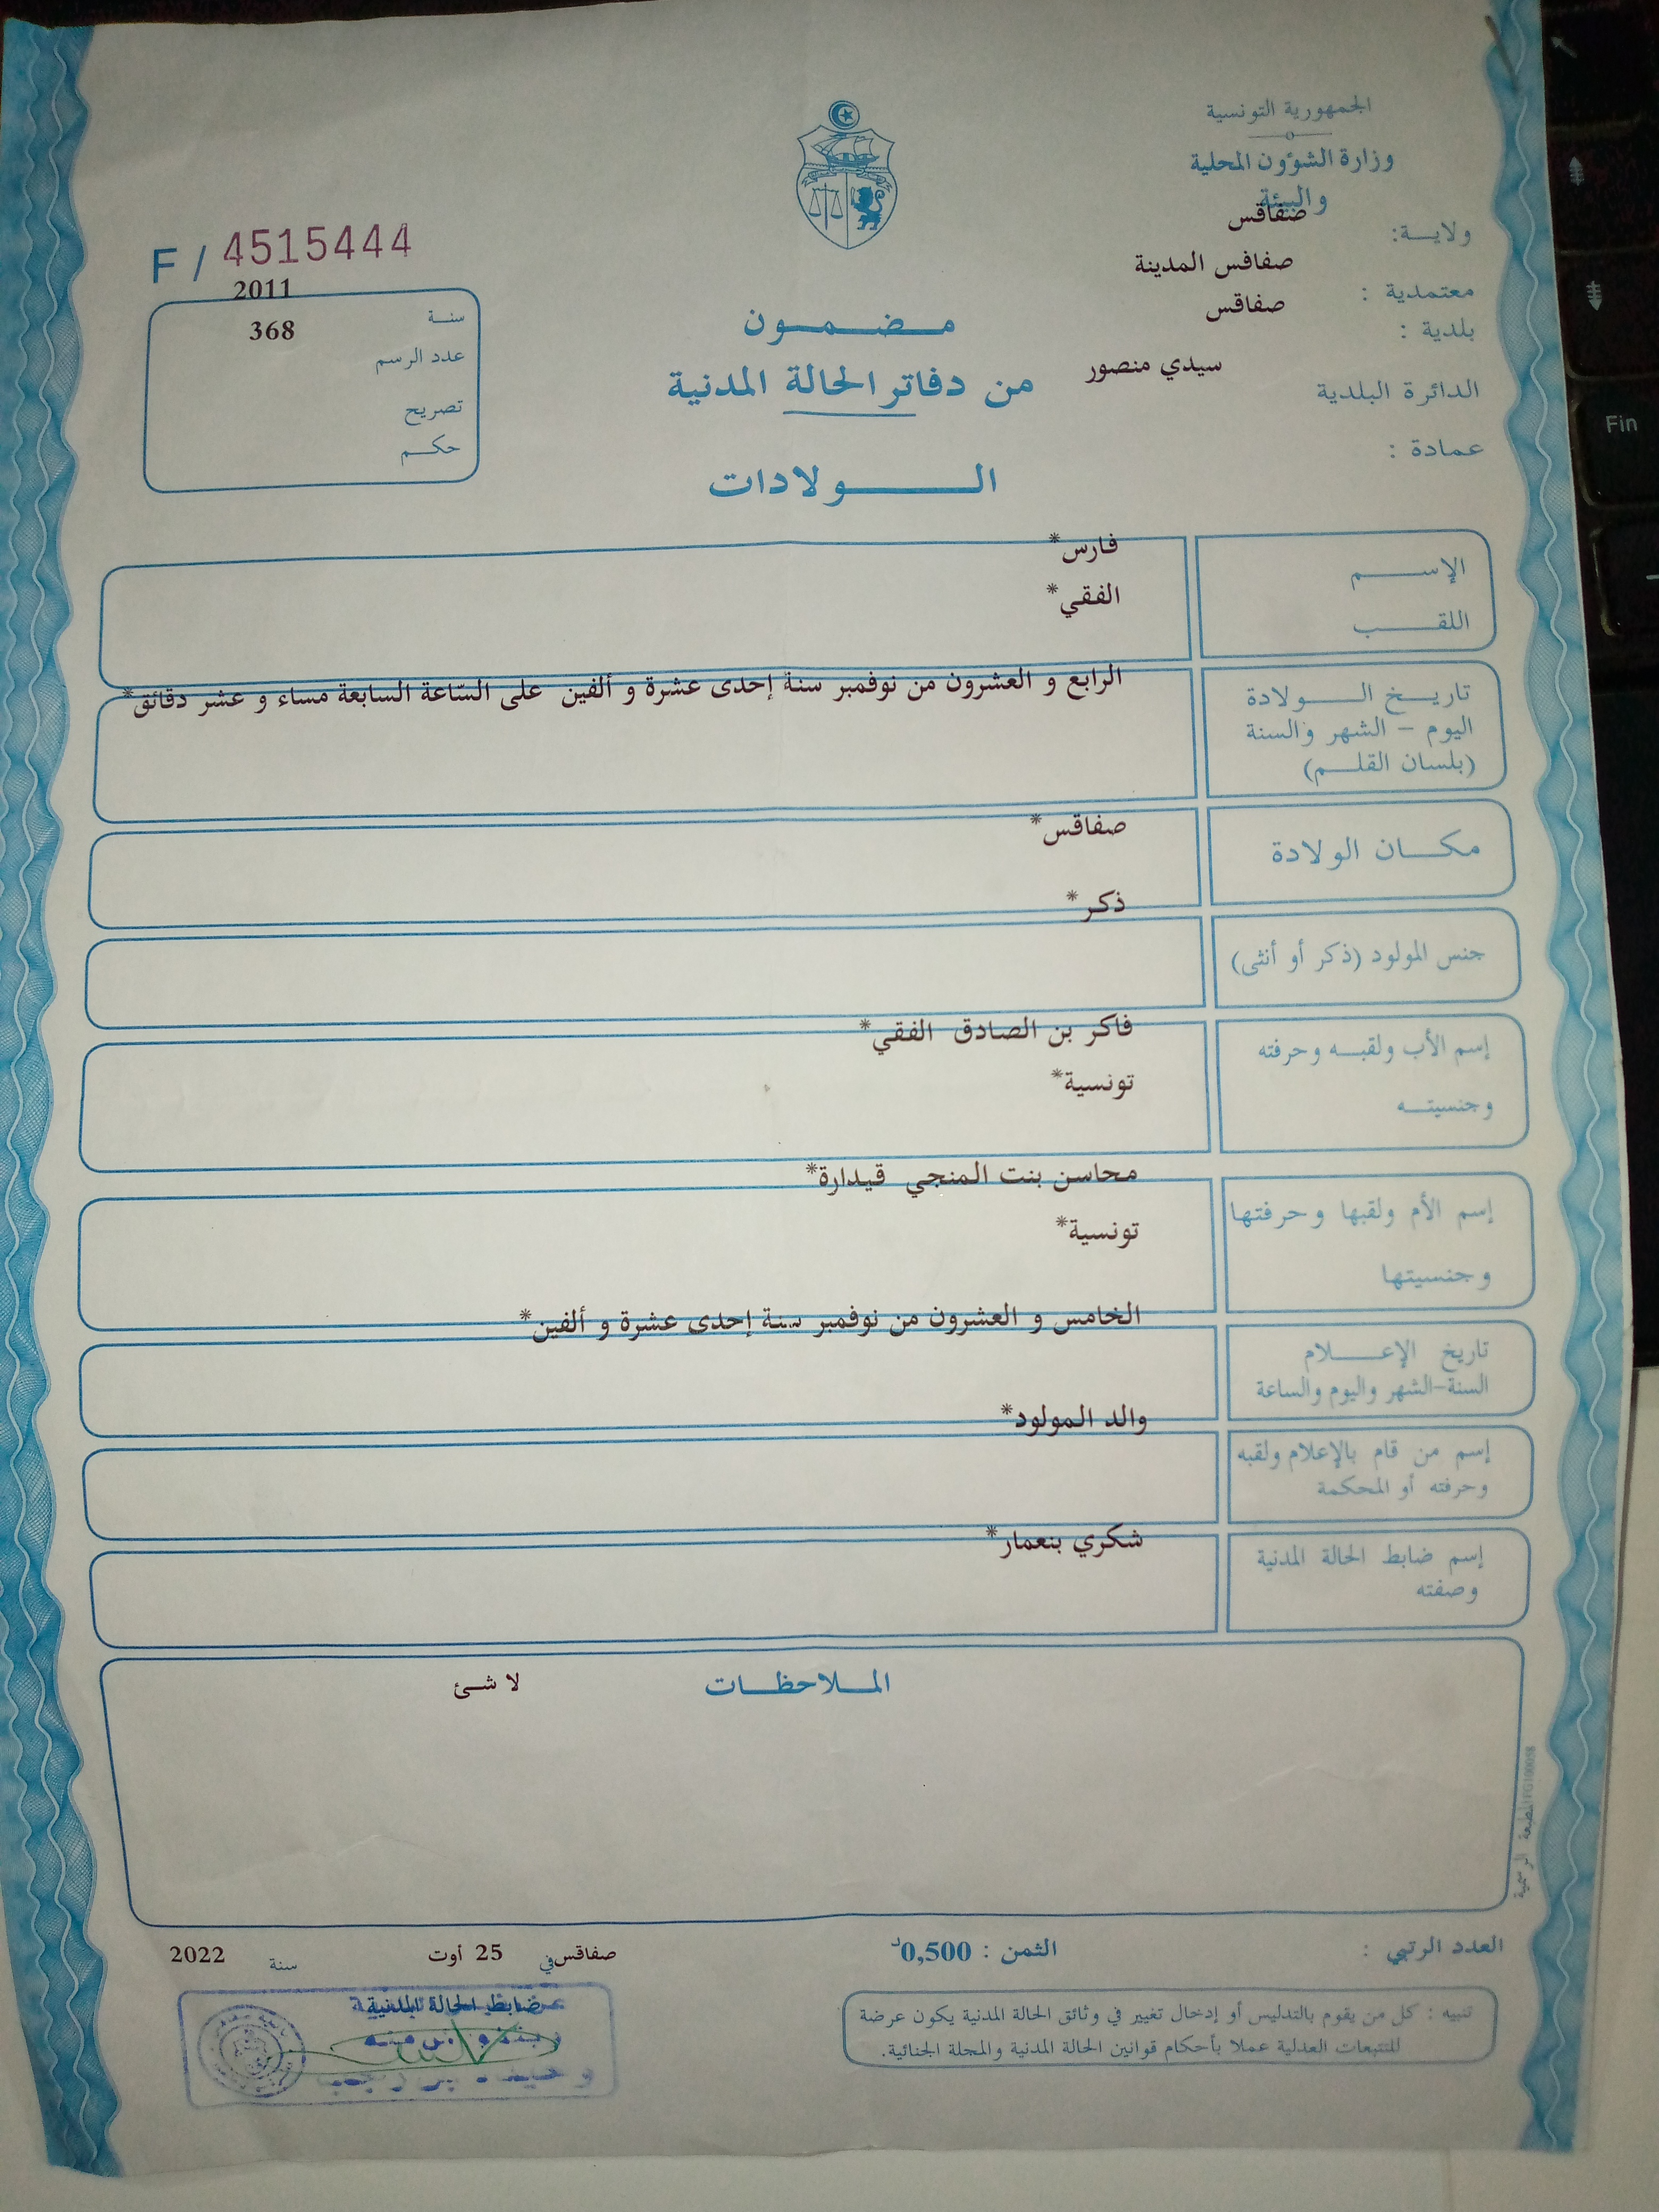 الجمهورية التونسية
وزارة الشؤون المحلية
والبيئة
ولاية: صفاقس
معتمدية : صفاقس المدينة
بلدية : صفاقس
الدائرة البلدية سيدي منصور
عمادة :
F / 4515444
سنة 2011
عدد الرسم 368
تصريح
حكم
مضمون
من دفاتر الحالة المدنية
الولادات
الإسم فارس*
اللقب الفقي*
تاريخ الولادة الرابع و العشرون من نوفمبر سنة إحدى عشرة و ألفين على السّاعة السابعة مساء و عشر دقائق*
اليوم – الشهر والسنة
(بلسان القلم)
مكان الولادة صفاقس*
جنس المولود (ذكر أو أنثى) ذكر*
إسم الأب ولقبه وحرفته فاكر بن الصادق الفقي*
وجنسيته تونسية*
إسم الأم ولقبها وحرفتها محاسن بنت المنجي قيدارة*
وجنسيتها تونسية*
تاريخ الإعلام الخامس و العشرون من نوفمبر سنة إحدى عشرة و ألفين*
السنة-الشهر واليوم والساعة
إسم من قام بالإعلام ولقبه والد المولود*
وحرفته أو المحكمة
إسم ضابط الحالة المدنية شكري بنعمار*
وصفته
الملاحظات لا شئ
المطبعة الرسمية
العدد الرتبي :
الثمن : 0,500د
صفاقس في 25 أوت سنة 2022
تنبيه : كل من يقوم بالتدليس أو إدخال تغيير في وثائق الحالة المدنية يكون عرضة
للتتبعات العدلية عملا بأحكام قوانين الحالة المدنية والمجلة الجنائية.
ضابط الحالة المدنية
Fin